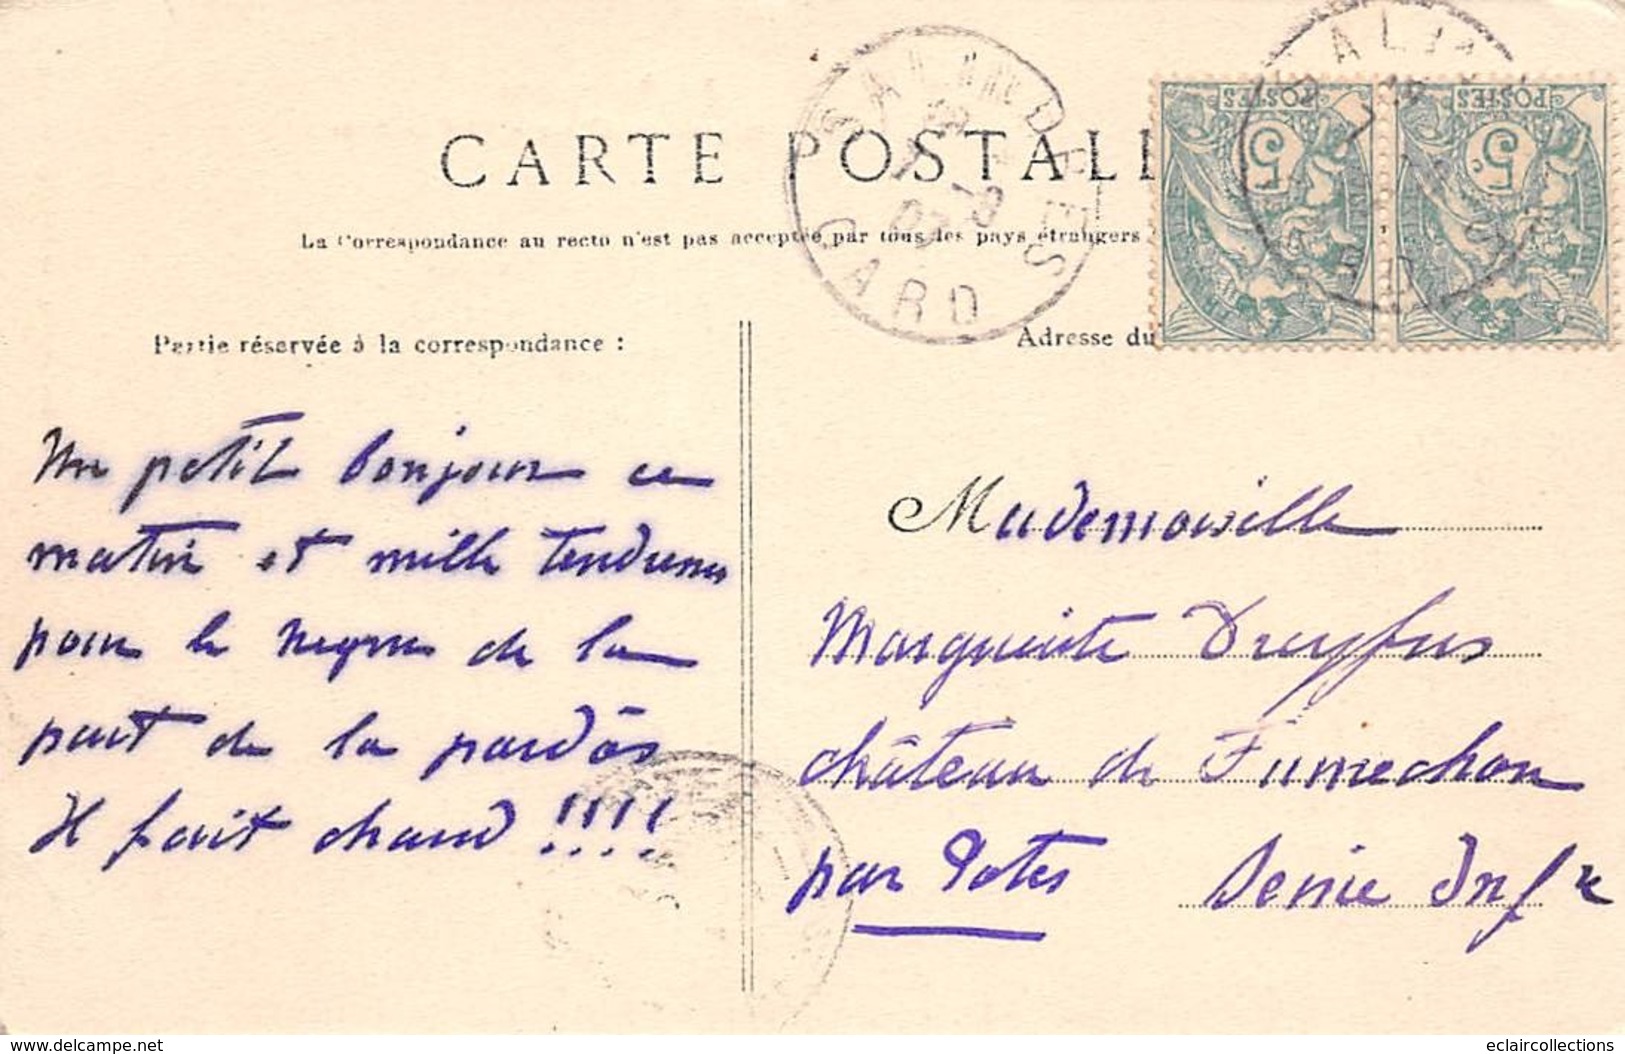 CARTE POSTALE
La Correspondance au recto n'est pas acceptée par tous les pays étrangers
Partie réservée à la correspondance :
Adresse du
GARD
POSTES
5c
POSTES
5c
Un petit bonjour ce
matin et mille tendresses
pour le negre de la
part de la
Il fait chaud !!!!
Mademoiselle
Marguerite Dreyfus
château de Fumechon
par Totes Seine Infre
delcampe.net
eclaircollections